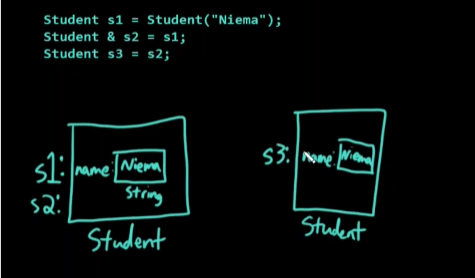 Student s1 = Student("Niema");
Student & s2 = s1;
Student s3 = s2;
s1: name: Niema
s2: String
Student
s3: name: Niema
Student